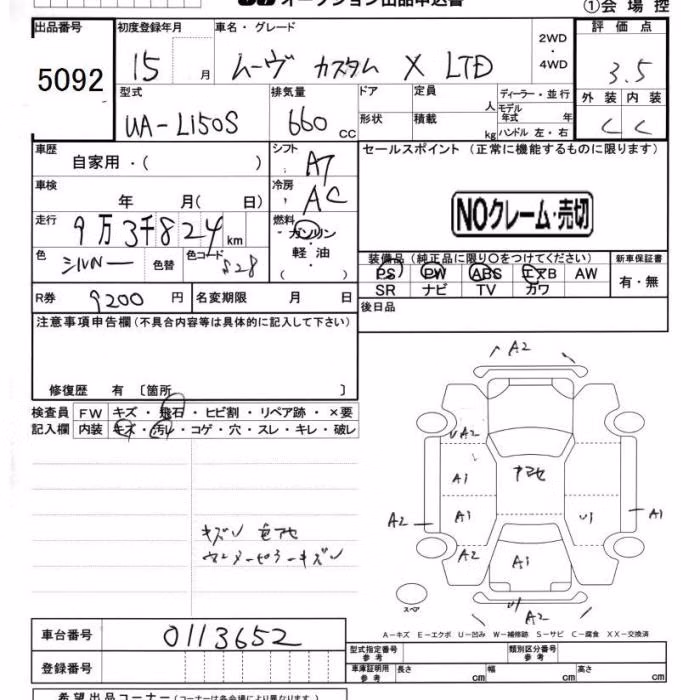 オークション出品申込書
①会場控
出品番号 初度登録年月 車名・グレード 評価点
5092 15 月 ムーヴ カスタム X LTD 2WD・4WD 3.5
型式 排気量 ドア 定員 人 ディーラー・並行 外装 内装
UA-L150S 660 CC 形状 積載 kg モデル年式 年 ハンドル 左・右 C C
車歴 シフト セールスポイント (正常に機能するものに限ります)
自家用・( ) AT
車検 年 月( 日) 冷房 AC
NOクレーム・売切
走行 9万3千824km 燃料 ガソリン
軽油
( )
色 シルバー 色替 色コード S28
装備品 (純正品に限り○をつけてください) 新車保証書
PS PW ABS エアB AW 有・無
SR ナビ TV カワ
R券 9200 円 名変期限 月 日 後日品
注意事項申告欄 (不具合内容等は具体的に記入して下さい)
修復歴 有 〔箇所 〕
検査員 FW キズ・飛石・ヒビ割・リペア跡・×要
記入欄 内装 キズ・汚レ・コゲ・穴・スレ・キレ・破レ
A2
UA2
A1
A1 U1
A2 A1
A2 A1
A2
スペア
A-キズ E-エクボ U-凹み W-補修跡 S-サビ C-腐食 XX-交換済
車台番号 0113652
登録番号
型式指定番号 参考 類別区分番号 参考
車庫証明用 参考 長さ cm 幅 cm 高さ cm
希望出品コーナー (コーナーは各会場により異なります。)